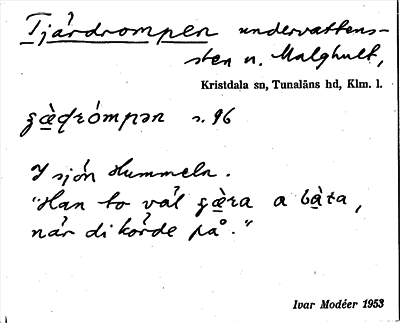 Tjärdrompen undervattens-
sten n. Malghult,
Kristdala sn, Tunaläns hd, Klm. l.
s. 96
I sjön Hummeln.
"Han to väl gæ̀ra a bà̱ta,
när di körde på."
Ivar Modéer 1953